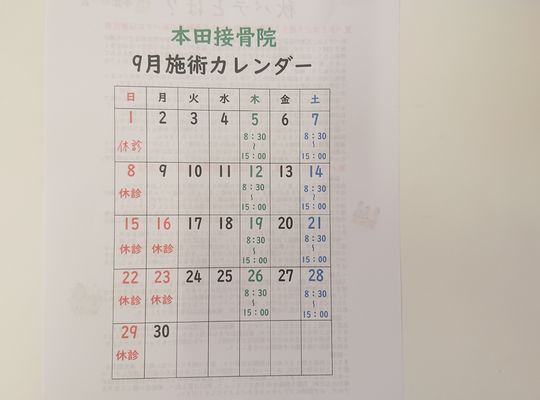 本田接骨院
9月施術カレンダー
日 月 火 水 木 金 土
1 2 3 4 5 6 7
休診 8:30 8:30
~ ~
15:00 15:00
8 9 10 11 12 13 14
休診 8:30 8:30
~ ~
15:00 15:00
15 16 17 18 19 20 21
休診 休診 8:30 8:30
~ ~
15:00 15:00
22 23 24 25 26 27 28
休診 休診 8:30 8:30
~ ~
15:00 15:00
29 30
休診